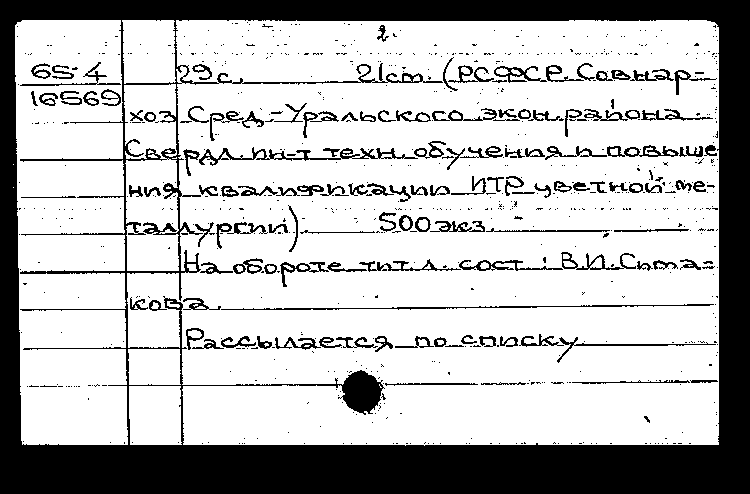 2.
65-4 29с. 21см. (РСФСР. Совнар-
16569
хоз Сред.-Уральского экон. района.
Свердл. ин-т техн. обучения и повыше
ния квалификации ИТР цветной ме-
таллургии). 500 экз.
На обороте тит. л. сост.: В.И. Сита-
кова.
Рассылается по списку